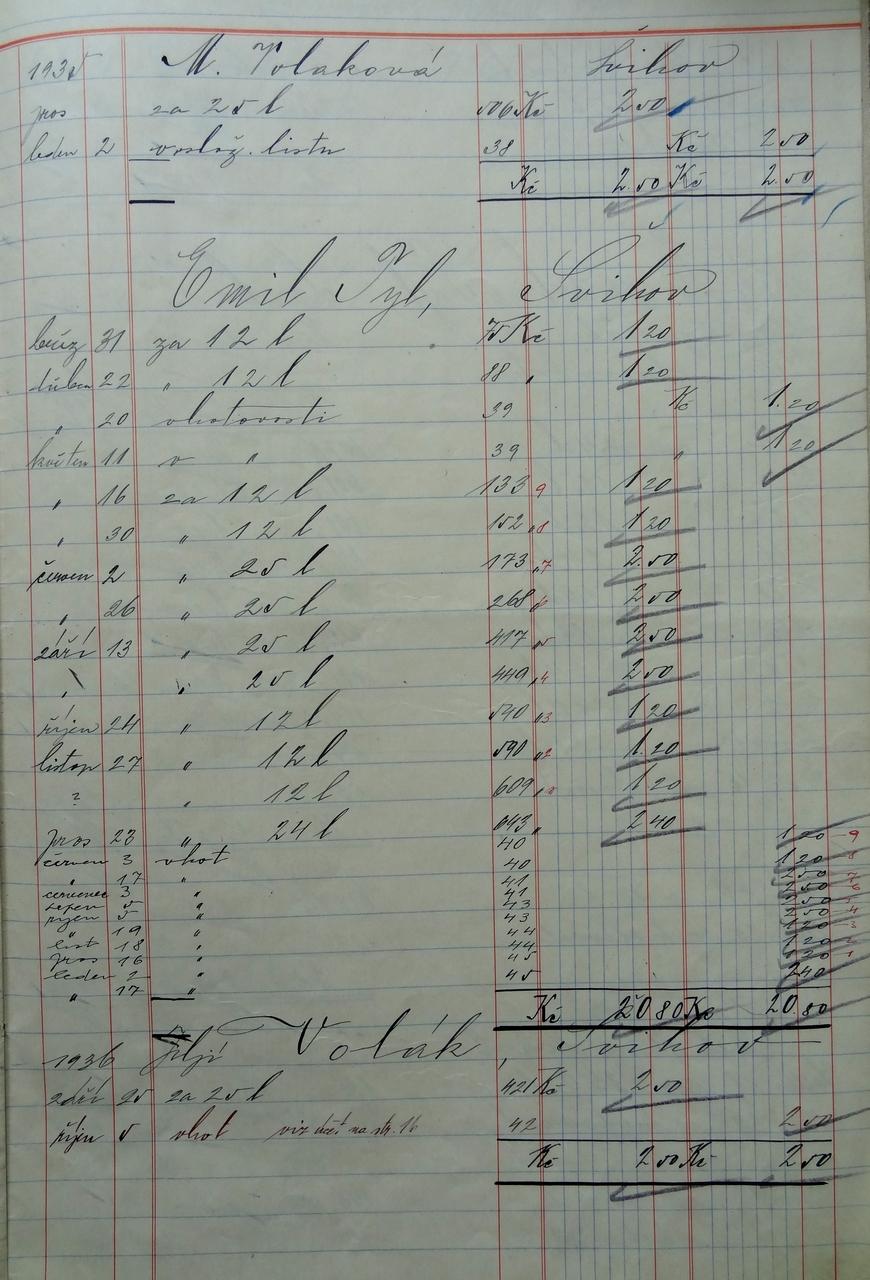 1935 M. Volaková Švihov
pros za 25 l 506 Kč 2 50
leden 2 v slož. listu 38 Kč 2 50
Kč 2.50 Kč 2.50
Emil Tyl, Švihov
břez 31 za 12 l 75 Kč 1 20
duben 22 " 12 l 88 " 1 20
" 20 v hotovosti 39 Kč 1.20
květen 11 v " 39 " 1 20
" 16 za 12 l 133 9 1 20
" 30 " 12 l 152 " 8 1 20
červen 2 " 25 l 173 " 7 2.50
" 26 " 25 l 268 " 6 2 50
září 13 " 25 l 417 " 5 2 50
" " 25 l 449 " 4 2 50
říjen 24 " 12 l 540 " 3 1 20
listop 27 " 12 l 590 " 2 1.20
? " 12 l 609 " 1 20
pros 23 " 24 l 693 " 2 40
červen 3 vhot 40 1 20 9
" 17 " 40 1 20 8
červenec 3 " 41 2 50 7
srpen 5 " 41 2 50 6
říjen 5 " 43 2 50 5
" 19 " 43 2 50 4
list 18 " 44 1 20 3
pros 16 " 44 1 20 2
leden 2 " 45 1 20 1
" 17 " 45 2 40
Kč 20 80 Kč 20.80
1936 Jiljí Volák, Švihov
září 25 za 25 l 421 Kč 2 50
říjn 5 vhot viz účet na str. 16 42 2 50
Kč 2 50 Kč 2 50